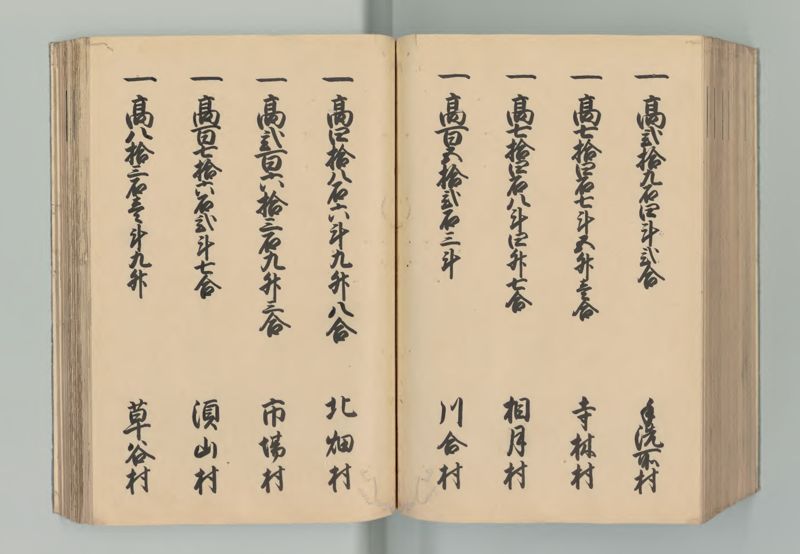 一 高弐拾九石四斗弐合 手洗所村
一 高七拾四石七斗五升壱合 寺林村
一 高七拾四石八斗四升七合 相月村
一 高百五拾弐石三斗 川合村
一 高四拾八石六斗九升八合 北畑村
一 高弐百六拾三石九升三合 市場村
一 高百七拾六石弐斗七合 須山村
一 高八拾三石壱斗九升 草谷村